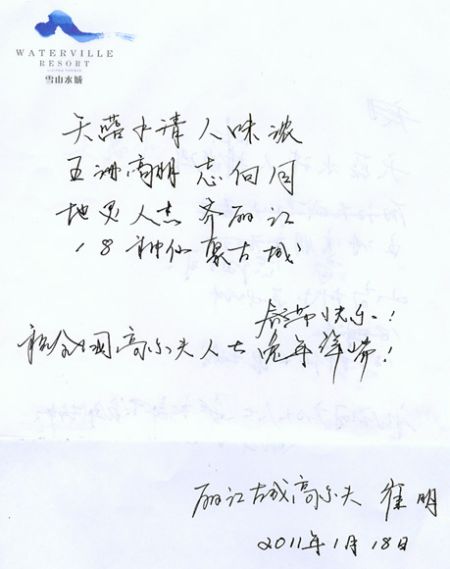 WATERVILLE
RESORT
雪山水城
天蓝水清人味浓
五洲高朋志向同
地灵人杰齐丽江
18神仙聚古城
春节快乐!
祝全国高尔夫人士兔年祥瑞!
丽江古城高尔夫 崔明
2011年1月18日